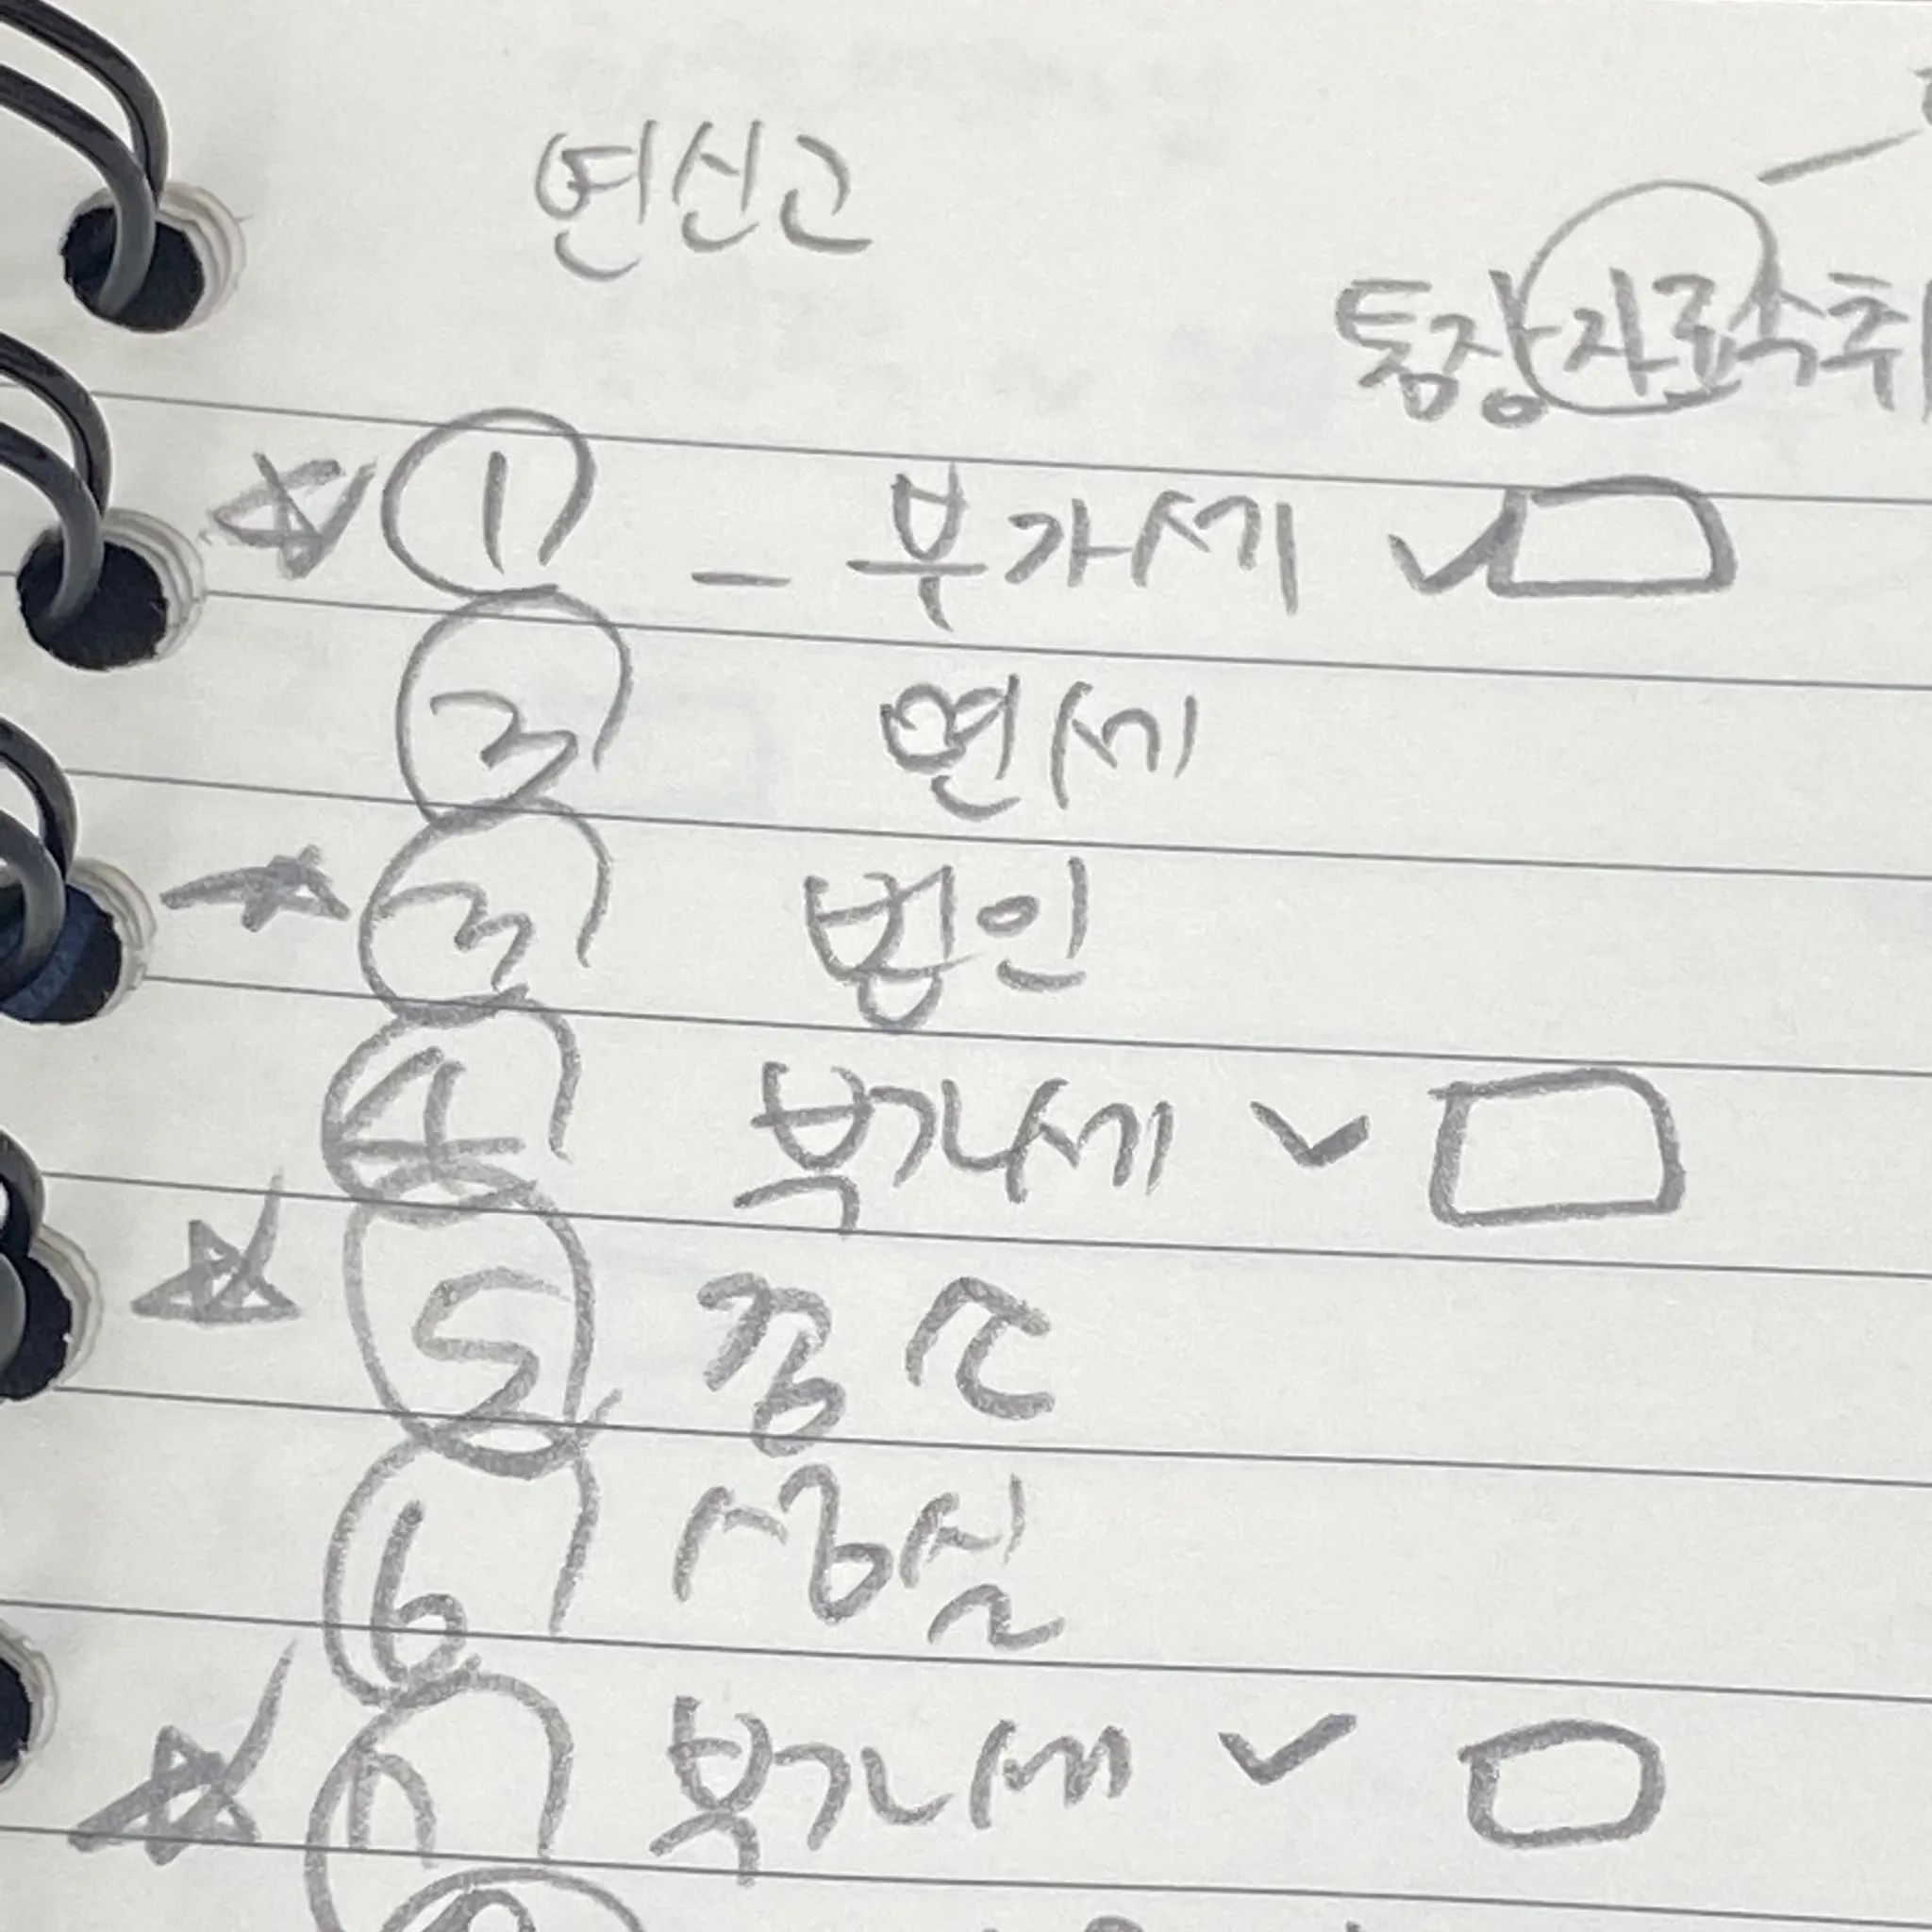 연신고
통장자료수취
① - 부가세 ✓
② 연세
③ 법인
④ 부가세 ✓
⑤ 종소
⑥ 성실
⑦ 부가세 ✓